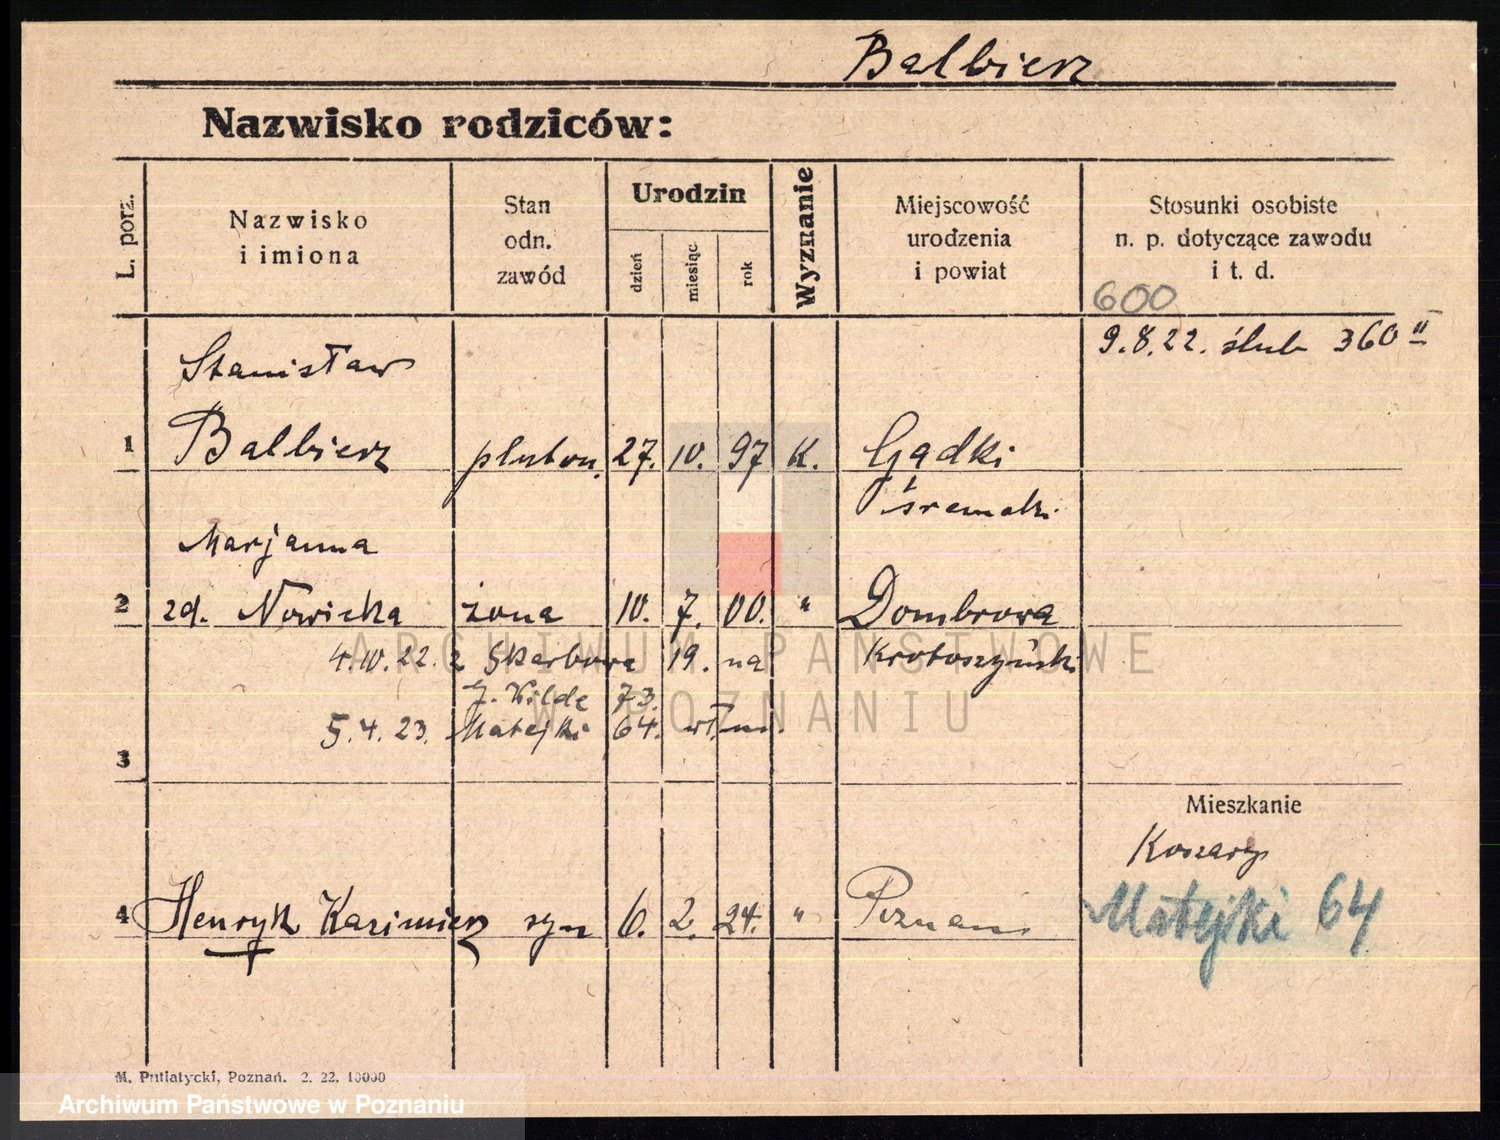 Balbierz
Nazwisko rodziców:
L. porz.
Nazwisko
i imiona
Stan
odn.
zawód
Urodzin
dzień
miesiąc
rok
Wyznanie
Miejscowość
urodzenia
i powiat
Stosunki osobiste
n. p. dotyczące zawodu
i t. d.
600
9.8.22. ślub 360 II
Stanisław
1 Balbierz pluton. 27. 10. 97 K. Gądki
śremski
Marjanna
2 zd. Nowicka żona 10. 7. 00. " Dombrowa
4.10.22. Skarbowa 19. na Krotoszyński
J. Wilde 73.
5.4.23. Matejki 64.
3
Mieszkanie
Koszary
4 Henryk Kazimierz syn 6. 2. 24. " Poznań
Matejki 64
M. Putiatycki, Poznań. 2. 22. 10000
ARCHIWUM PAŃSTWOWE
W POZNANIU
Archiwum Państwowe w Poznaniu